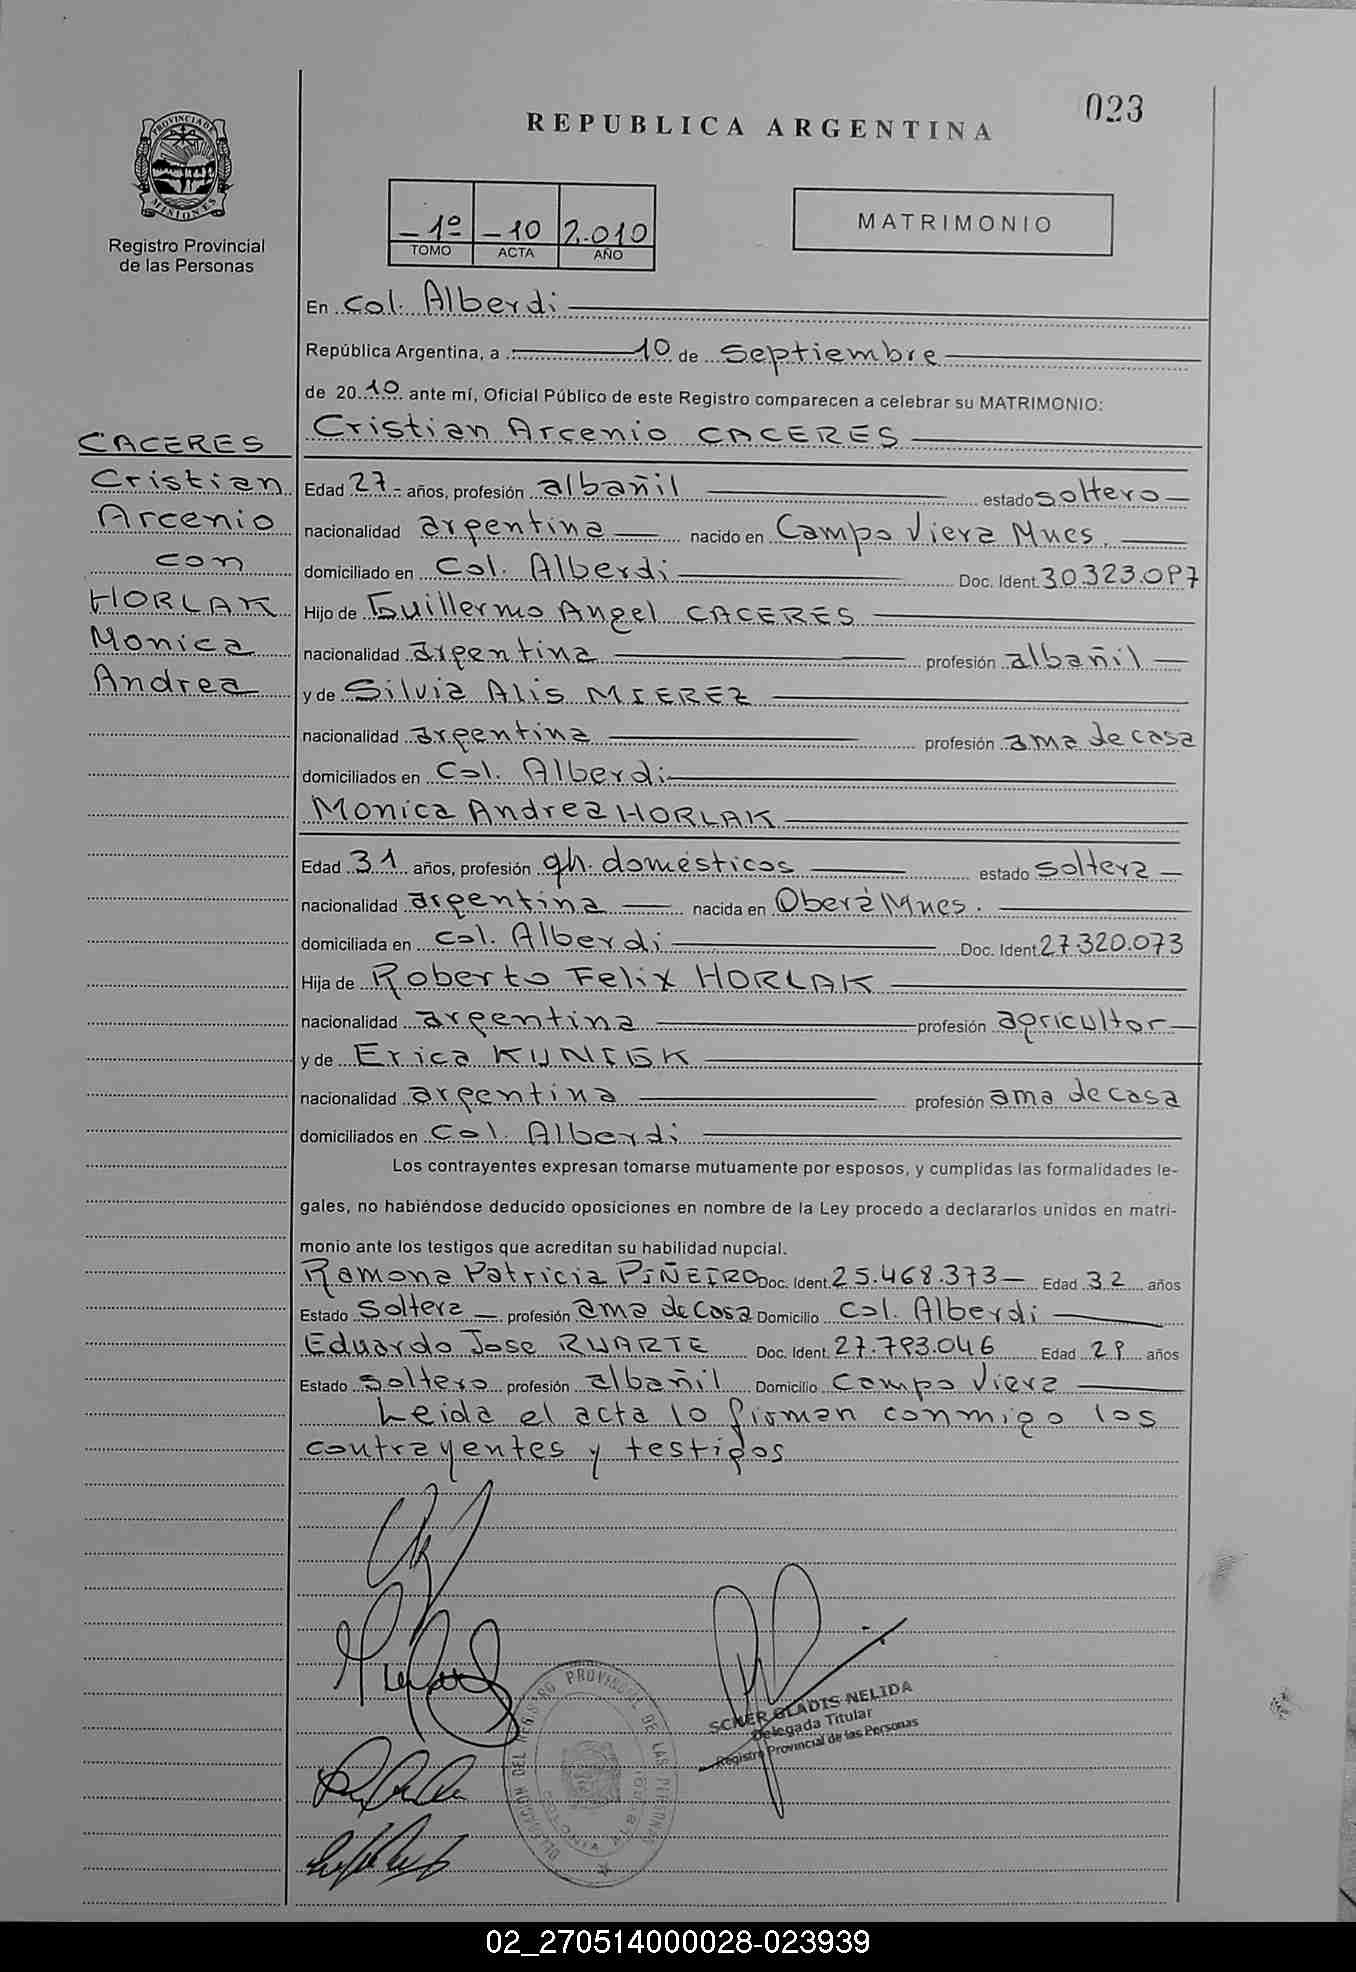 023
REPUBLICA ARGENTINA
PROVINCIA DE
MISIONES
Registro Provincial
de las Personas
-1º -10 2.010
TOMO ACTA AÑO
MATRIMONIO
En Col. Alberdi
República Argentina, a 10 de Septiembre
de 2010 ante mí, Oficial Público de este Registro comparecen a celebrar su MATRIMONIO:
Cristian Arcenio CACERES
CACERES
Cristian
Arcenio
con
HORLAK
Monica
Andrea
Edad 27- años, profesión albañil estado soltero
nacionalidad argentina nacido en Campo Viera Mnes.
domiciliado en Col. Alberdi Doc. Ident. 30.323.097
Hijo de Guillermo Angel CACERES
nacionalidad argentina profesión albañil
y de Silvia Alis MIEREZ
nacionalidad argentina profesión ama de casa
domiciliados en Col. Alberdi
Monica Andrea HORLAK
Edad 31 años, profesión qh. domésticos estado soltera
nacionalidad argentina nacida en Oberá Mnes.
domiciliada en Col. Alberdi Doc. Ident. 27.320.073
Hija de Roberto Felix HORLAK
nacionalidad argentina profesión agricultor
y de Erica KUNIGK
nacionalidad argentina profesión ama de casa
domiciliados en Col. Alberdi
Los contrayentes expresan tomarse mutuamente por esposos, y cumplidas las formalidades le-
gales, no habiéndose deducido oposiciones en nombre de la Ley procedo a declararlos unidos en matri-
monio ante los testigos que acreditan su habilidad nupcial.
Ramona Patricia PIÑEIRO Doc. Ident. 25.468.373 Edad 32 años
Estado Soltera profesión ama de casa Domicilio Col. Alberdi
Eduardo Jose RUARTE Doc. Ident. 27.793.046 Edad 29 años
Estado soltero profesión albañil Domicilio Campo Viera
Leida el acta lo firman conmigo los
contrayentes y testigos
DELEGACION DEL REGISTRO PROVINCIAL DE LAS PERSONAS
SCHER GLADIS NELIDA
Delegada Titular
Registro Provincial de las Personas
02_270514000028-023939